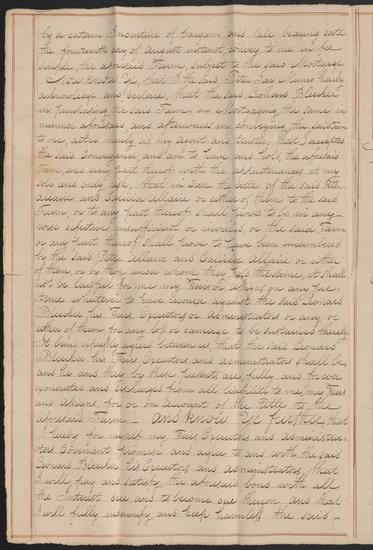 by a certain Indenture of bargain and sale bearing date
the fourteenth day of August instant, convey to me in fee
simple, the aforesaid Farm, subject to the said Mortgage.
Now Know Ye, that I the said Peter Jay Munro
acknowledge and declare, that the said Leonard Bleecker
in purchasing the said Farm, in Mortgaging the same in
manner aforesaid, and afterwards in conveying the said
to me, acted merely as my agent and trustee, that I accepted
the said Conveyance and am to have and hold, the aforesaid
Farm, and every part thereof with the appurtenances at my
sole and only risk, that in case the title of the said Peter
Allaire and Calicia Allaire or either of them to the said
Farm, or to any part thereof shall prove to be in any-
wise defective insufficient or invalid, or the said Farm
or any part thereof shall prove to have been incumbered
by the said Peter Allaire and Calicia Allaire or either
of them, or by those under whom they held the same, it shall
not be lawful for me my Heirs or assigns on any pre-
tence whatever to have recourse against the said Leonard
Bleecker his Heirs, Executors or Administrators or any or
either of them for any loss or damage to be sustained thereby.
It being expressly agreed between us, that the said Leonard
Bleecker his Heirs Executors and administrators shall be,
and he and they by these Presents, are fully and forever
exonerated and discharged from all liability to me, my Heirs
and assigns, for or on account of the title to the
aforesaid Farm — And Know Ye further, that
I hereby for myself my Heirs Executors and administra-
tors Covenant promise and agree to and with the said
Leonard Bleecker his Executors and administrators, that
I will pay and satisfy the aforesaid bond with all
the Interest due and to become due thereon, and that
I will fully indemnify and keep harmless the said —